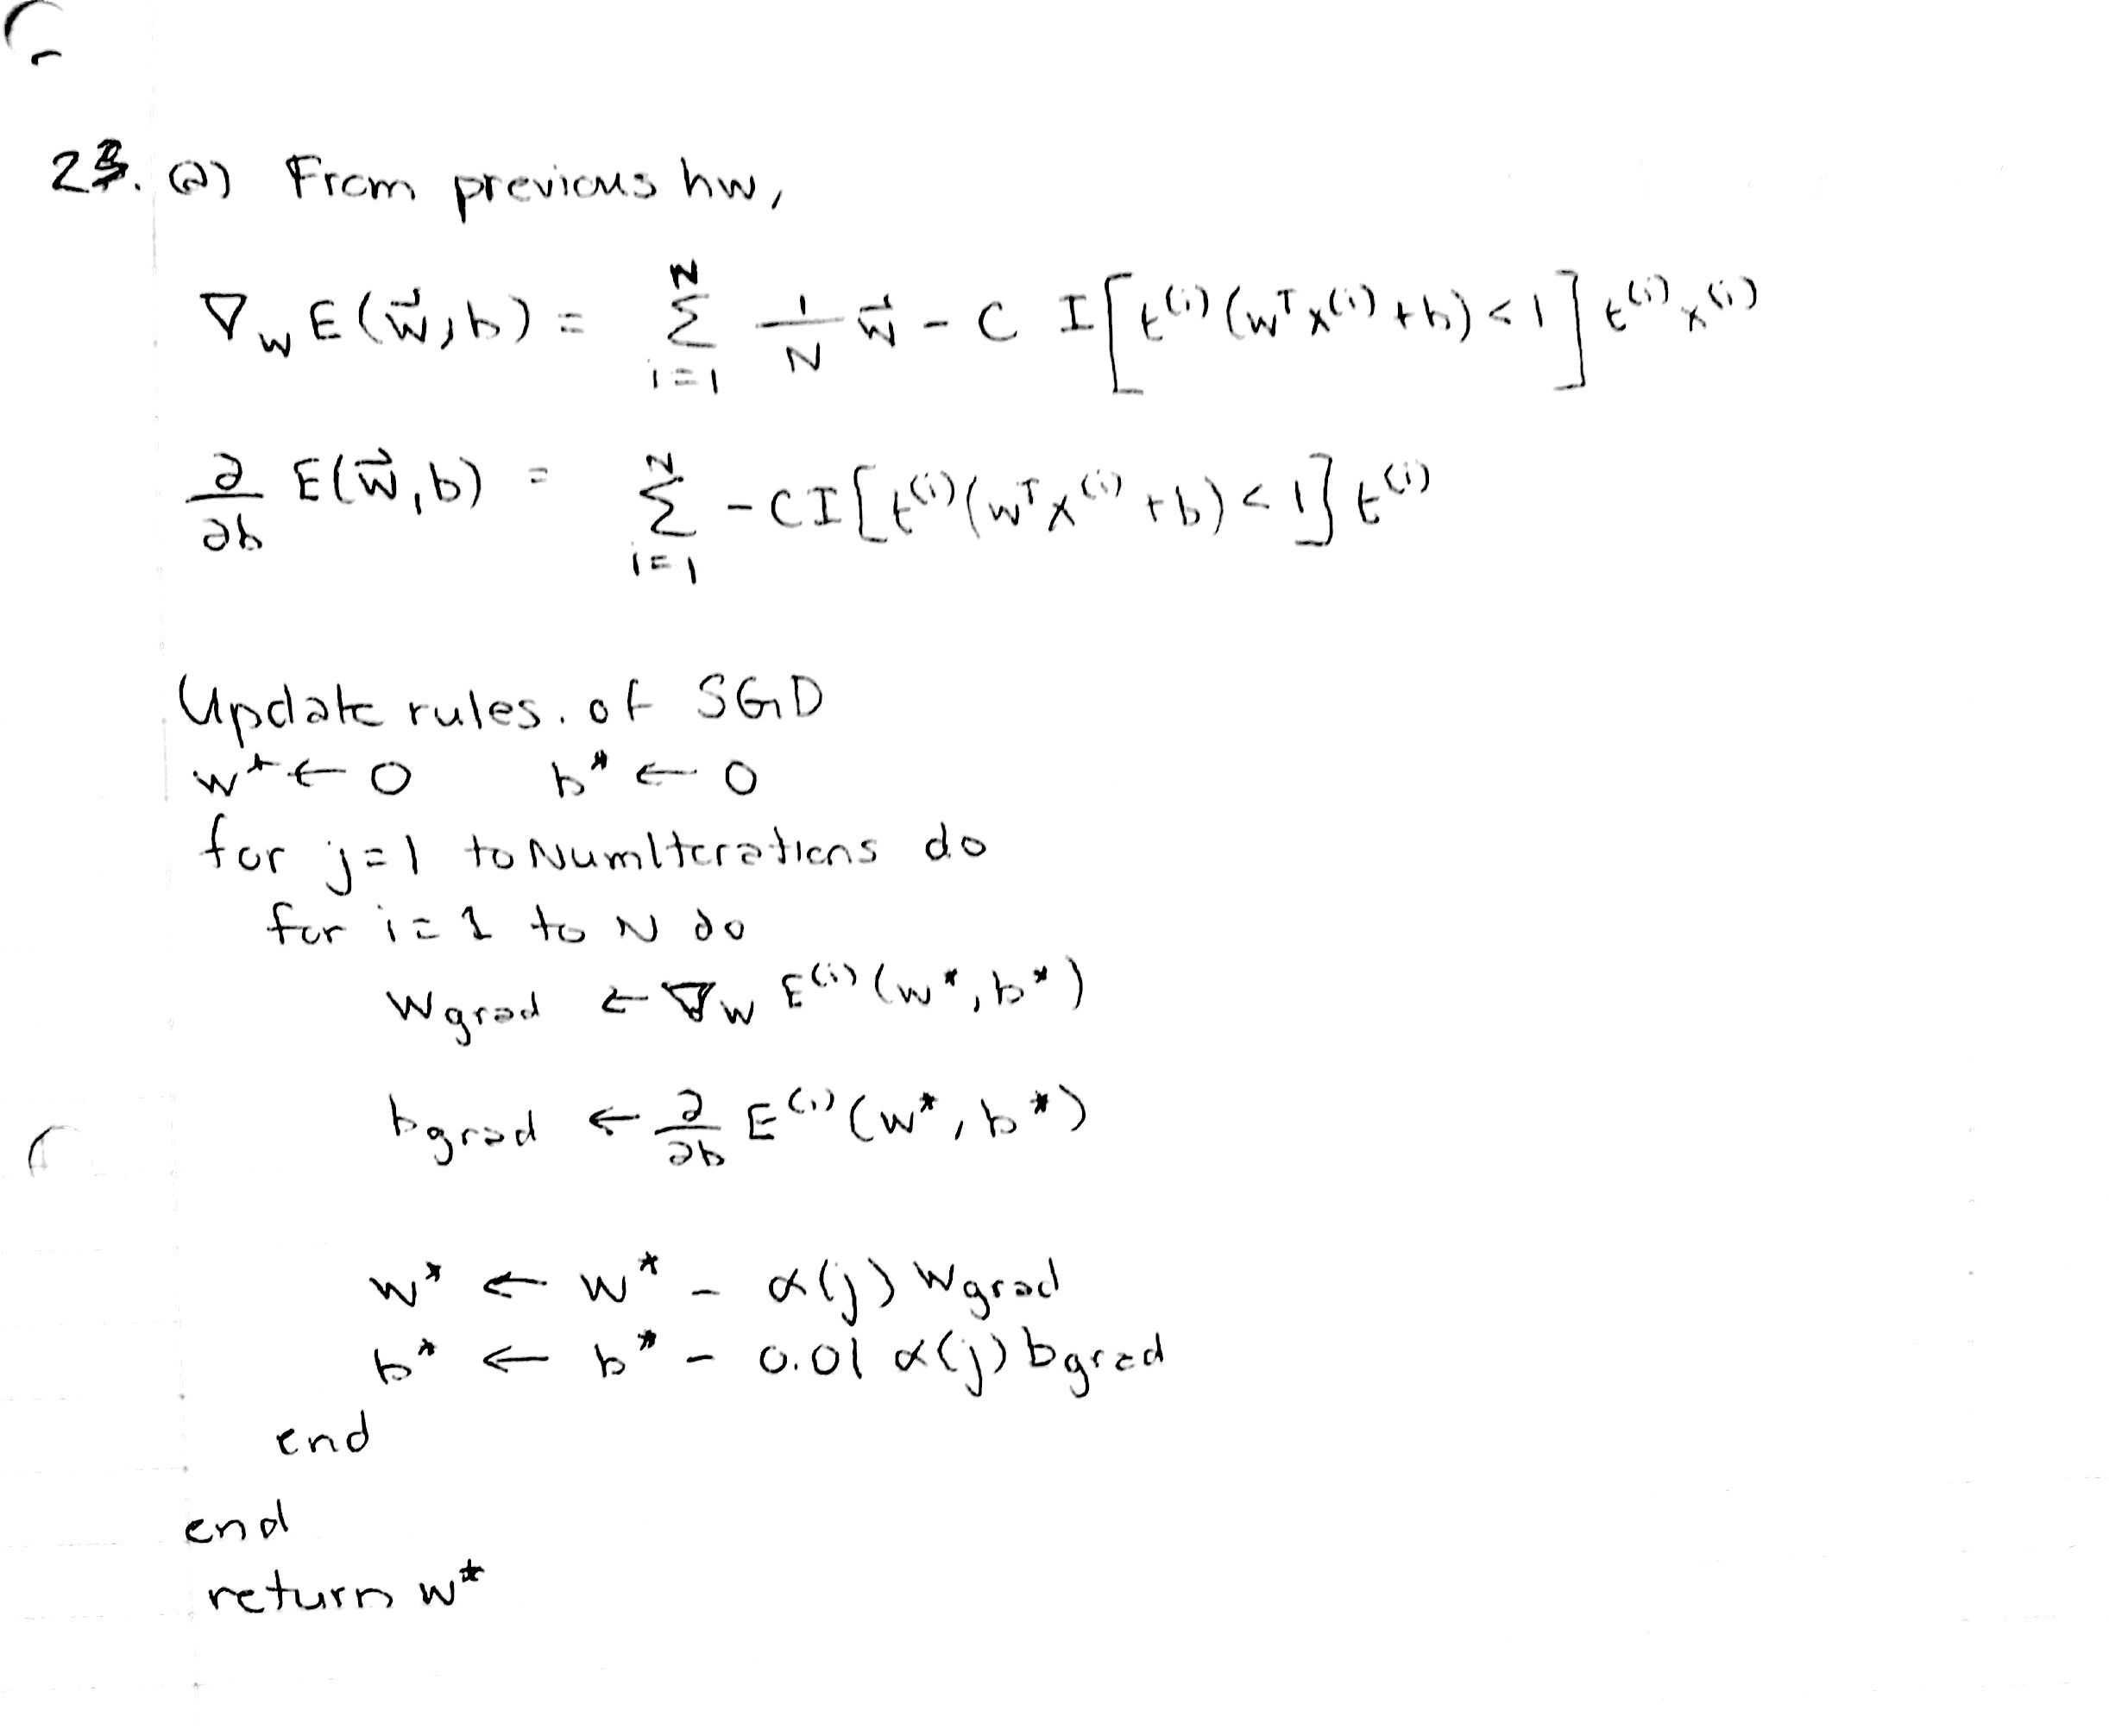 23. (a) From previous hw,
∇_w E(w⃗,b) = Σ_{i=1}^{N} 1/N w⃗ - C I[t^(i)(w^T x^(i) + b) < 1] t^(i) x^(i)
∂/∂b E(w⃗,b) = Σ_{i=1}^{N} - C I[t^(i)(w^T x^(i) + b) < 1] t^(i)
Update rules. of SGD
w* ← 0 b* ← 0
for j=1 to NumIterations do
for i=1 to N do
w_grad ← ∇_w E^(i)(w*, b*)
b_grad ← ∂/∂b E^(i)(w*, b*)
w* ← w* - α(j) w_grad
b* ← b* - 0.01 α(j) b_grad
end
end
return w*